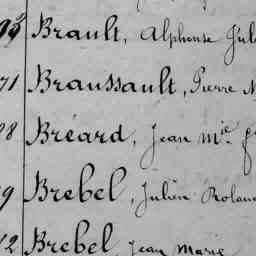 Brault, Alphonse Jul
71 Braussault, Pierre M
Bréard, Jean Mie. f
Brebel, Julien Rolan
Brebel, Jean Marie